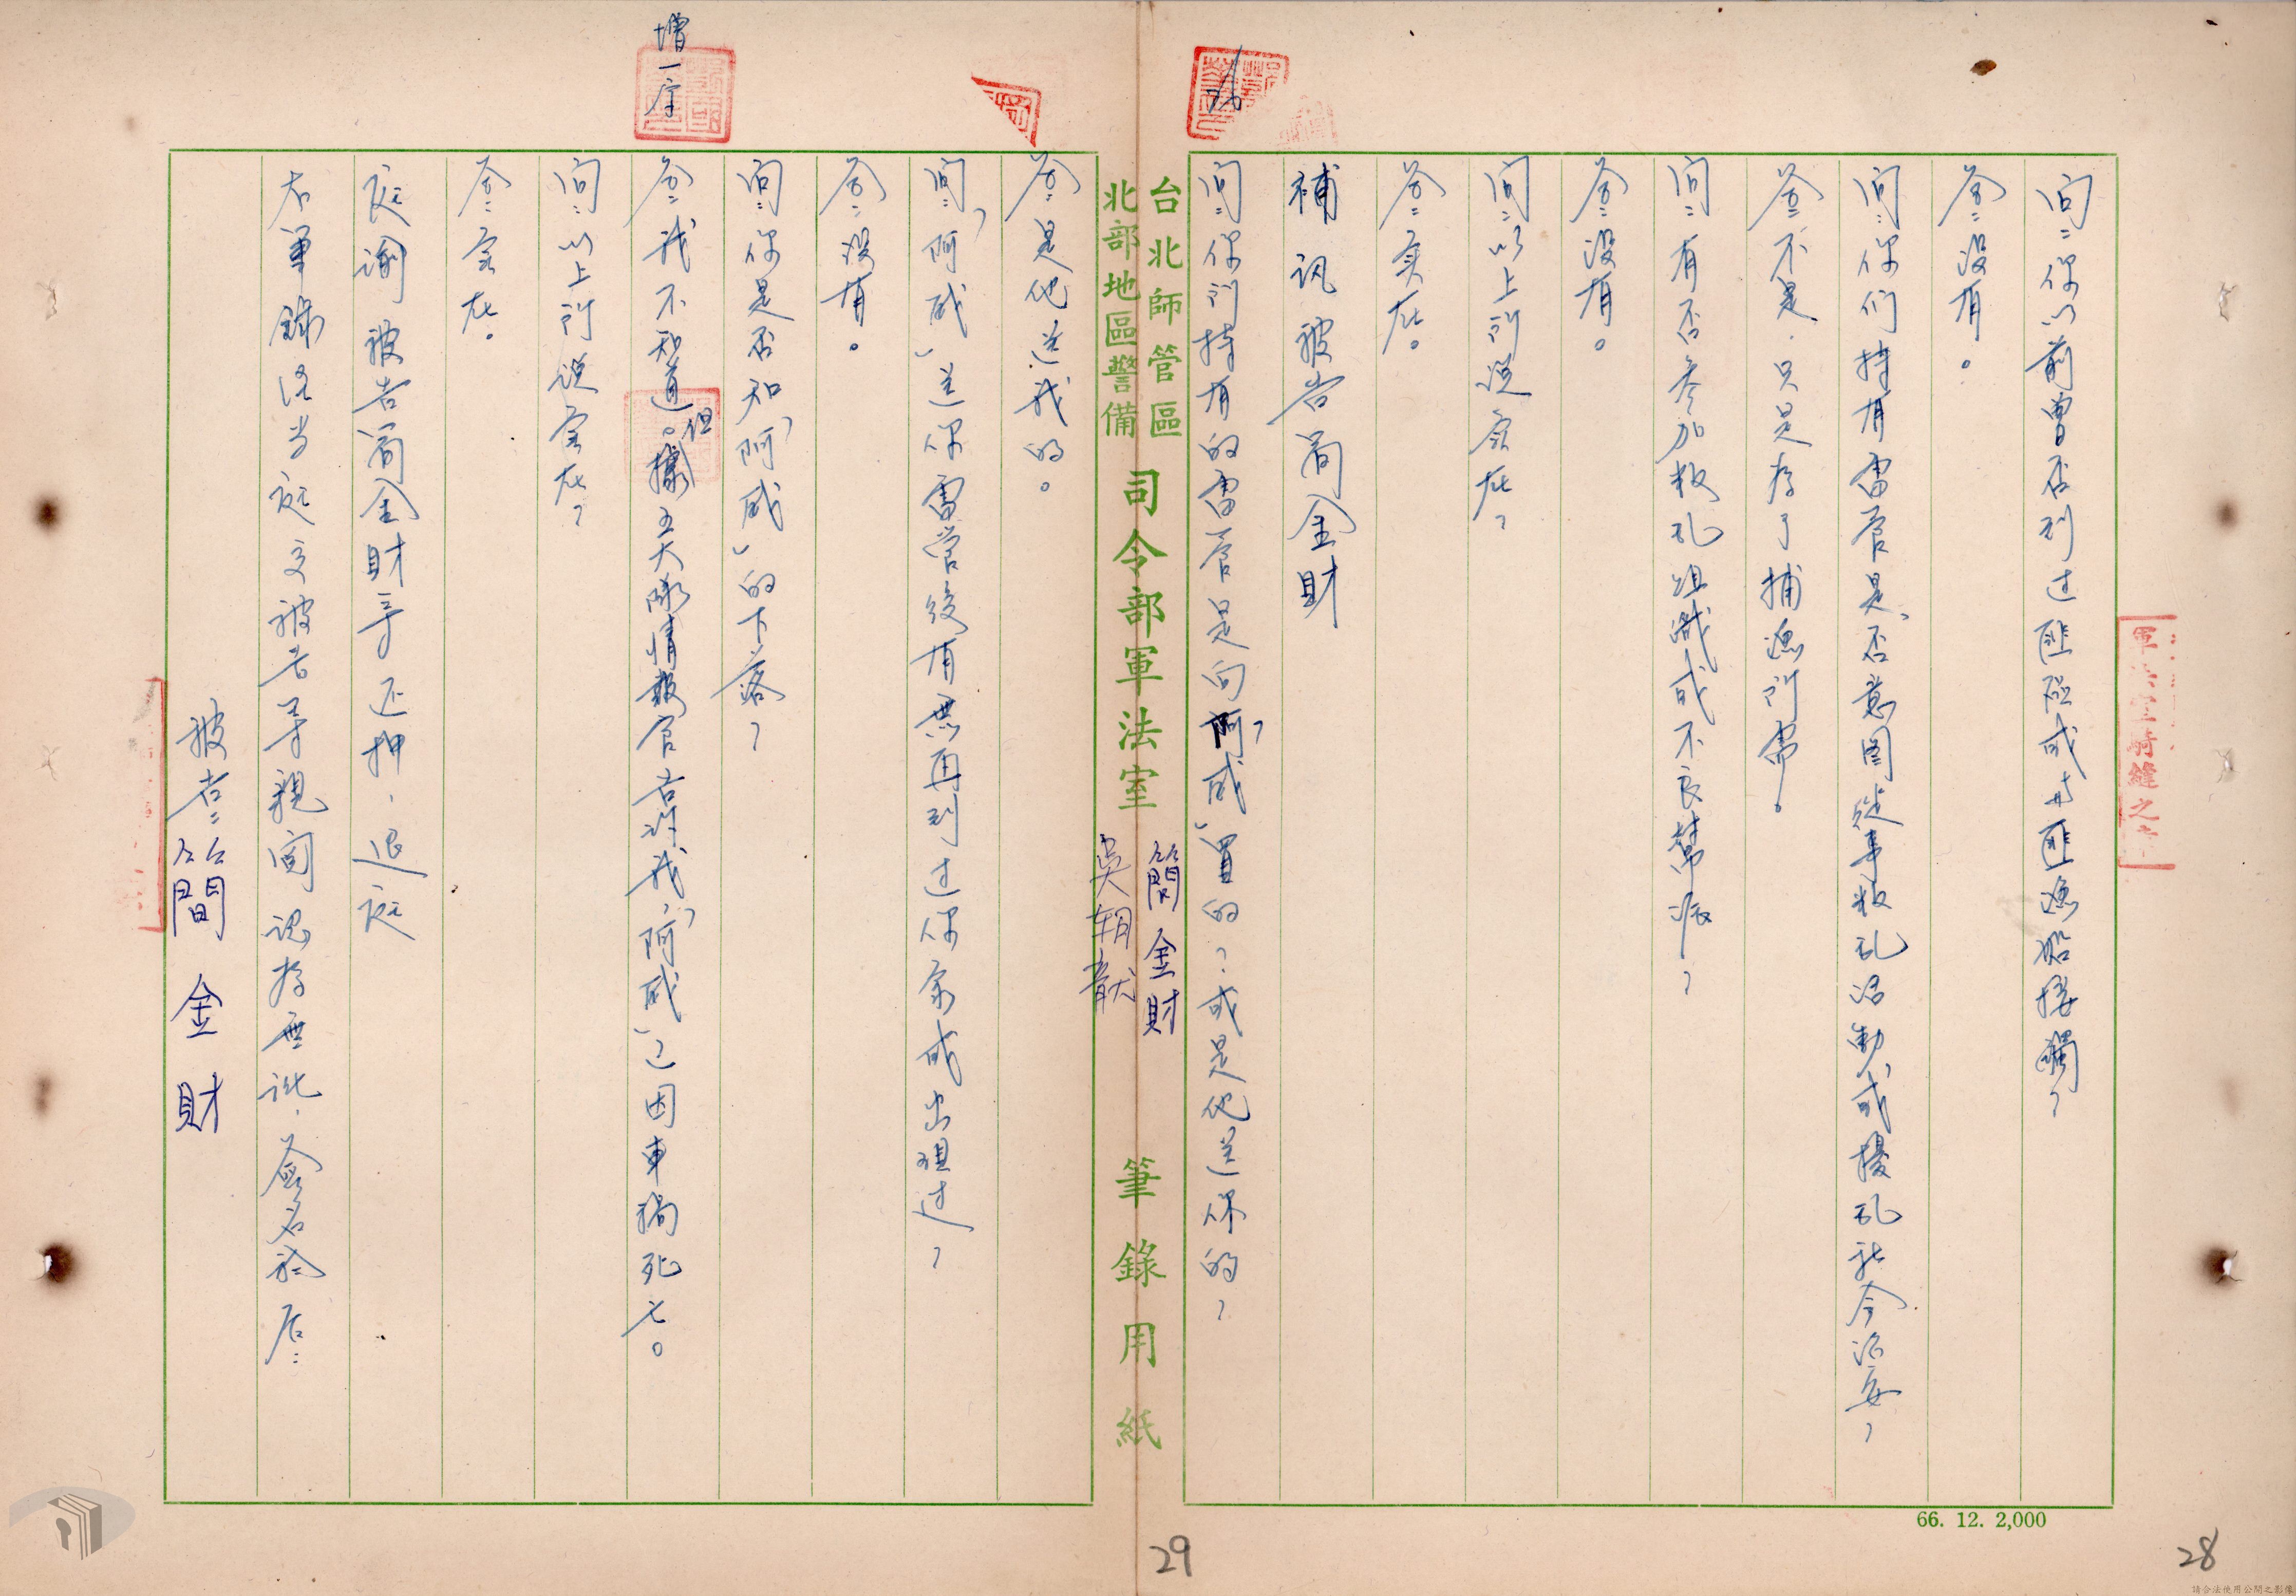 問：你以前曾否到过匪區或与匪漁船接觸？
答：沒有。
問：你們持有雷管是否意圖從事叛乱活動或擾乱社会治安？
答：不是，只是为了捕漁所需。
問：有否參加叛乱组織或不良幫派？
答：沒有。
問：以上所说实在？
答：实在。
補訊被告簡金財
問：你所持有的雷管是向「阿咸」買的？或是他送你的？
台北師管區
北部地區警備
司令部軍法室 筆錄用紙
簡金財
吳朝献
答：是他送我的。
問：「阿咸」送你雷管後有無再到过你家或出现过？
答：沒有。
問：你是否知「阿咸」的下落？
答：我不知道。但據五大隊情報官告訴我「阿咸」已因車禍死亡。
增一字
問：以上所说实在？
答：实在。
庭諭被告簡金財等还押，退庭
右筆錄经当庭交被告等親閱认为無訛，簽名於后：
被告：簡金財
軍法室騎縫之章
66. 12. 2,000
28
29
請合法使用公開之影像